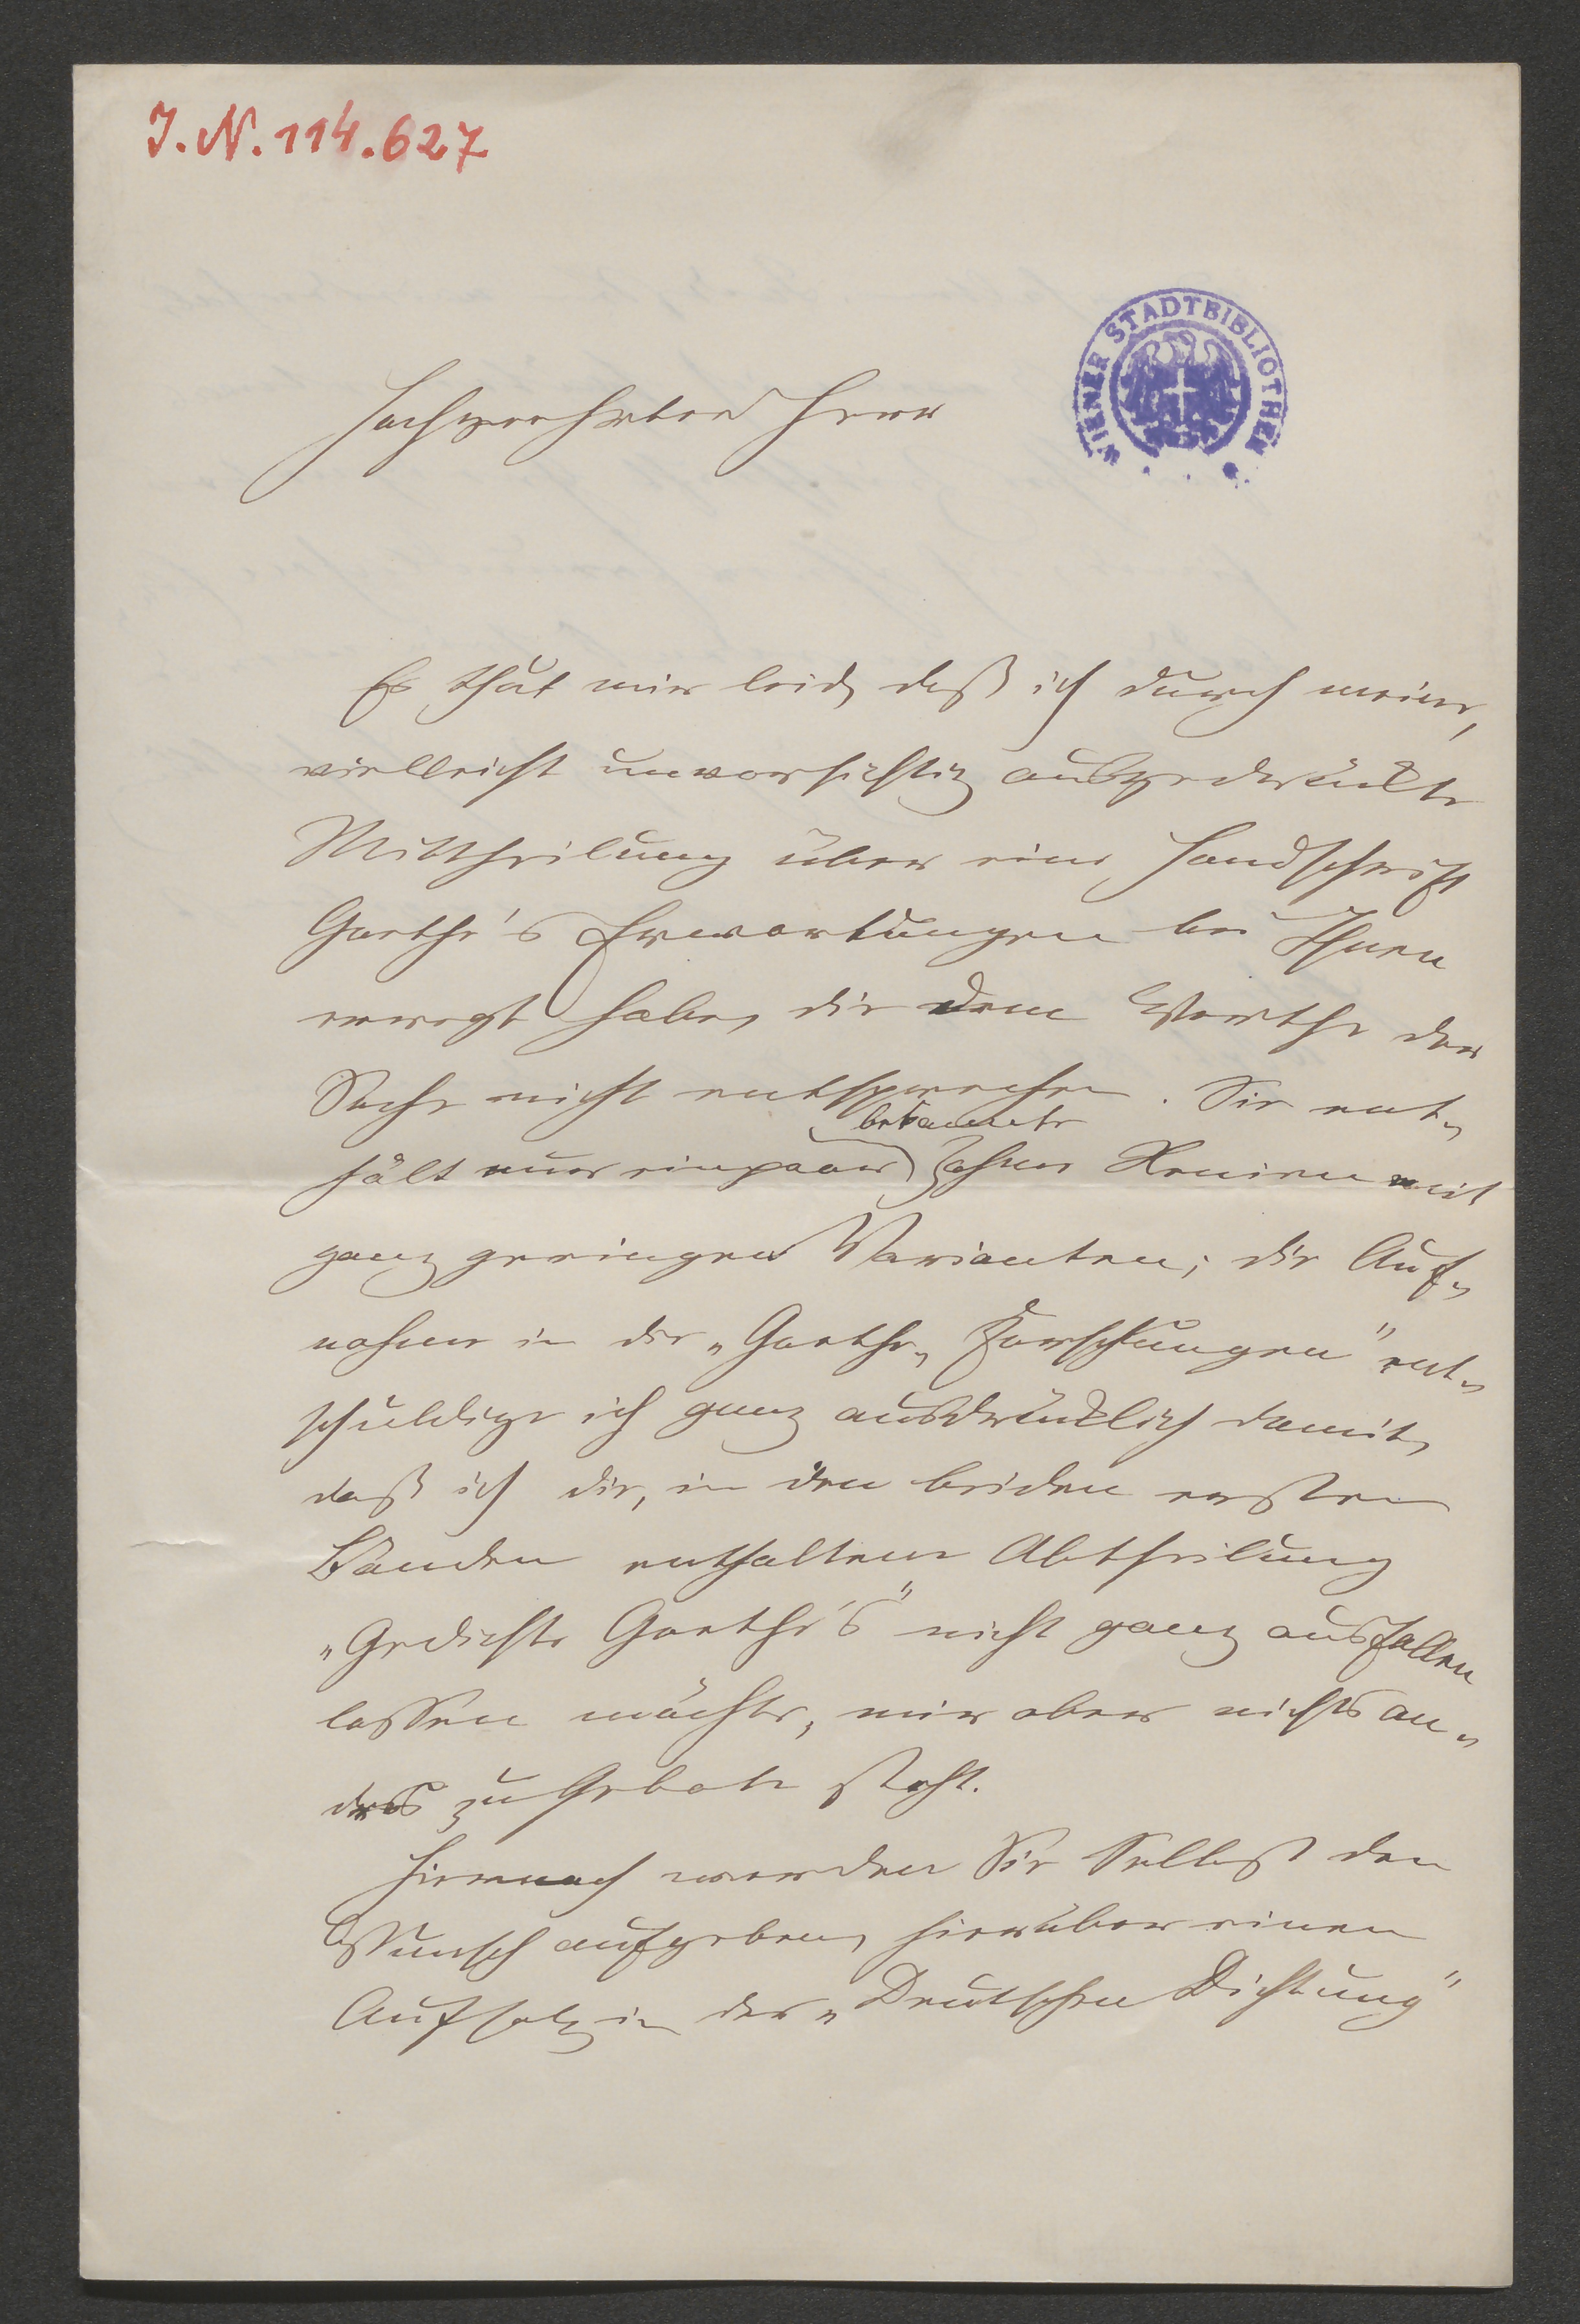 J. N. 114.627
WIENER STADTBIBLIOTHEK
Hochgeehrter Herr
Es thut mir leid, daß ich durch meine,
vielleicht unvorsichtig ausgedrückte
Mittheilung über eine Handschrift
Goethe's Erwartungen bei Ihnen
erregt habe, die dem Werthe der
Sache nicht entsprechen. Sie ent-
bekannte
hält nur ein paar zahme Xenien mit
ganz geringen Varianten; die Auf-
nahme in die „Goethe-Forschungen" ent-
schuldige ich ganz ausdrücklich damit,
daß ich die, in den beiden ersten
Bänden enthaltene Abtheilung
„Gedichte Goethe's" nicht ganz ausfallen
lassen möchte, mir aber nichts an-
dres zu Gebote steht.
Hiernach werden Sie Selbst den
Wunsch aufgeben, hierüber einen
Aufsatz in der „Deutschen Dichtung"